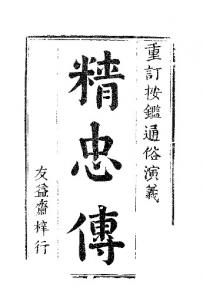 重訂按鑑通俗演義
精忠傳
友益齋梓行